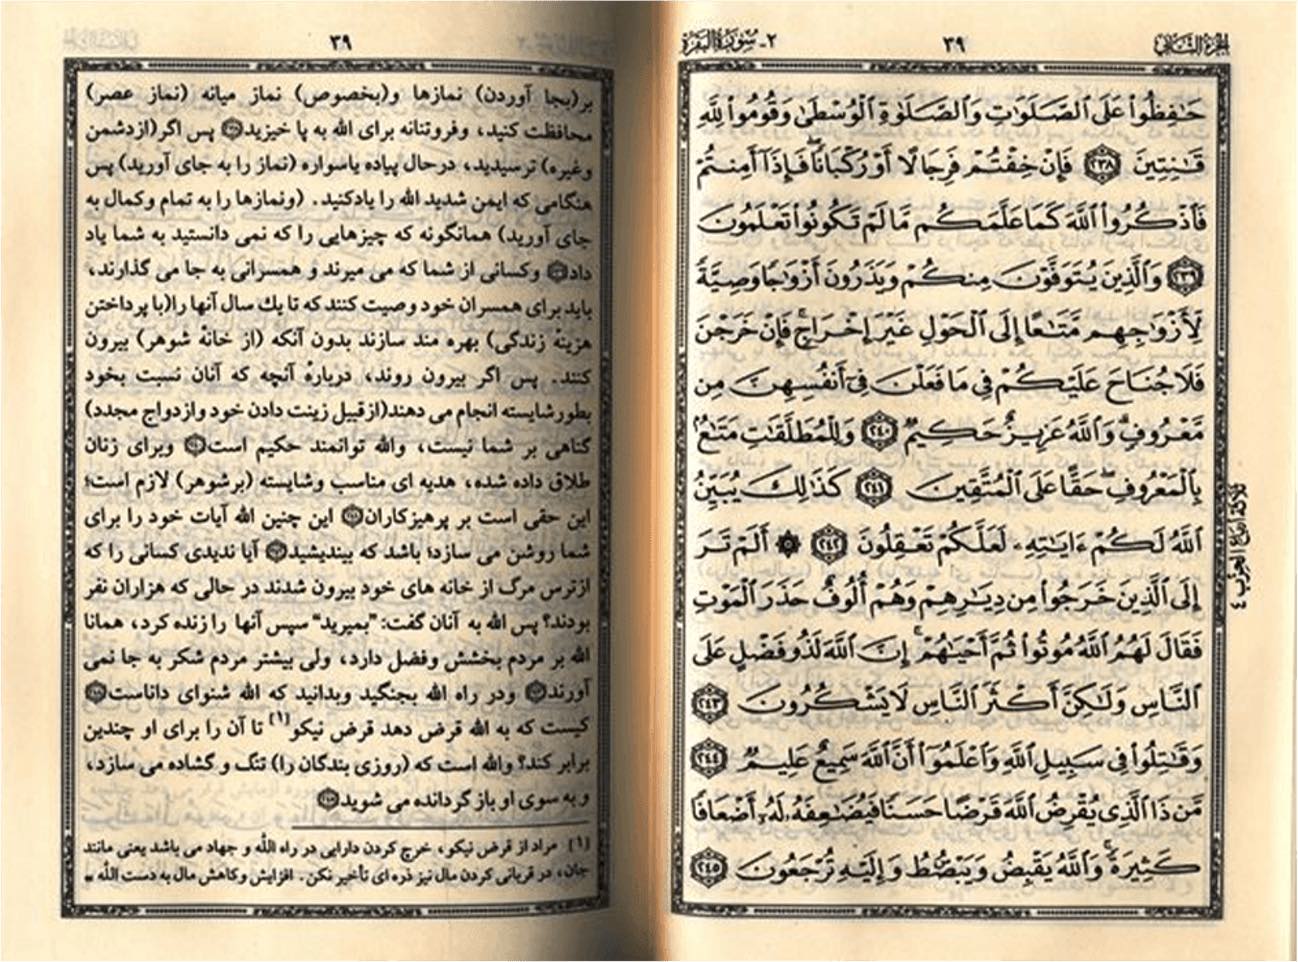 الجزء الثاني
٣٩
٢- سورة البقرة
حَـٰفِظُوا۟ عَلَى ٱلصَّلَوَٰتِ وَٱلصَّلَوٰةِ ٱلْوُسْطَىٰ وَقُومُوا۟ لِلَّهِ
قَـٰنِتِينَ ﴿٢٣٨﴾ فَإِنْ خِفْتُمْ فَرِجَالًا أَوْ رُكْبَانًا ۖ فَإِذَآ أَمِنتُمْ
فَٱذْكُرُوا۟ ٱللَّهَ كَمَا عَلَّمَكُم مَّا لَمْ تَكُونُوا۟ تَعْلَمُونَ
﴿٢٣٩﴾ وَٱلَّذِينَ يُتَوَفَّوْنَ مِنكُمْ وَيَذَرُونَ أَزْوَٰجًا وَصِيَّةً
لِّأَزْوَٰجِهِم مَّتَـٰعًا إِلَى ٱلْحَوْلِ غَيْرَ إِخْرَاجٍ ۚ فَإِنْ خَرَجْنَ
فَلَا جُنَاحَ عَلَيْكُمْ فِى مَا فَعَلْنَ فِىٓ أَنفُسِهِنَّ مِن
مَّعْرُوفٍ ۗ وَٱللَّهُ عَزِيزٌ حَكِيمٌ ﴿٢٤٠﴾ وَلِلْمُطَلَّقَـٰتِ مَتَـٰعٌۢ
بِٱلْمَعْرُوفِ ۖ حَقًّا عَلَى ٱلْمُتَّقِينَ ﴿٢٤١﴾ كَذَٰلِكَ يُبَيِّنُ
ٱللَّهُ لَكُمْ ءَايَـٰتِهِۦ لَعَلَّكُمْ تَعْقِلُونَ ﴿٢٤٢﴾ ۞ أَلَمْ تَرَ
إِلَى ٱلَّذِينَ خَرَجُوا۟ مِن دِيَـٰرِهِمْ وَهُمْ أُلُوفٌ حَذَرَ ٱلْمَوْتِ
فَقَالَ لَهُمُ ٱللَّهُ مُوتُوا۟ ثُمَّ أَحْيَـٰهُمْ ۚ إِنَّ ٱللَّهَ لَذُو فَضْلٍ عَلَى
ٱلنَّاسِ وَلَـٰكِنَّ أَكْثَرَ ٱلنَّاسِ لَا يَشْكُرُونَ ﴿٢٤٣﴾
وَقَـٰتِلُوا۟ فِى سَبِيلِ ٱللَّهِ وَٱعْلَمُوٓا۟ أَنَّ ٱللَّهَ سَمِيعٌ عَلِيمٌ ﴿٢٤٤﴾
مَّن ذَا ٱلَّذِى يُقْرِضُ ٱللَّهَ قَرْضًا حَسَنًا فَيُضَـٰعِفَهُۥ لَهُۥٓ أَضْعَافًا
كَثِيرَةً ۚ وَٱللَّهُ يَقْبِضُ وَيَبْصُۜطُ وَإِلَيْهِ تُرْجَعُونَ ﴿٢٤٥﴾
ثلاثة أرباع الحزب ٤
٣٩
بر(بجا آوردن) نمازها و(بخصوص) نماز میانه (نماز عصر)
محافظت کنید، وفروتنانه برای الله به پا خیزید پس اگر(ازدشمن
وغیره) ترسیدید، درحال پیاده یاسواره (نماز را به جای آورید) پس
هنگامی که ایمن شدید الله را یادکنید. (ونمازها را به تمام وکمال به
جای آورید) همانگونه که چیزهایی را که نمی دانستید به شما یاد
داد وکسانی از شما که می میرند و همسرانی به جا می گذارند،
باید برای همسران خود وصیت کنند که تا یك سال آنها را(با پرداختن
هزینهٔ زندگی) بهره مند سازند بدون آنکه (از خانهٔ شوهر) بیرون
کنند. پس اگر بیرون روند، دربارهٔ آنچه که آنان نسبت بخود
بطورشایسته انجام می دهند(ازقبیل زینت دادن خود وازدواج مجدد)
گناهی بر شما نیست، والله توانمند حکیم است وبرای زنان
طلاق داده شده، هدیه ای مناسب وشایسته (برشوهر) لازم است؛
این حقی است بر پرهیزکاران این چنین الله آیات خود را برای
شما روشن می سازد؛ باشد که بیندیشید آیا ندیدی کسانی را که
ازترس مرگ از خانه های خود بیرون شدند در حالی که هزاران نفر
بودند؟ پس الله به آنان گفت: "بمیرید" سپس آنها را زنده کرد، همانا
الله بر مردم بخشش وفضل دارد، ولی بیشتر مردم شکر به جا نمی
آورند ودر راه الله بجنگید وبدانید که الله شنوای داناست
کیست که به الله قرض دهد قرض نیکو[۱] تا آن را برای او چندین
برابر کند؟ والله است که (روزی بندگان را) تنگ و گشاده می سازد،
و به سوی او باز گردانده می شوید
[۱] مراد از قرض نیکو، خرج کردن دارایی در راه الله و جهاد می باشد یعنی مانند
جان، در قربانی کردن مال نیز ذره ای تأخیر نکن. افزایش وکاهش مال به دست الله =